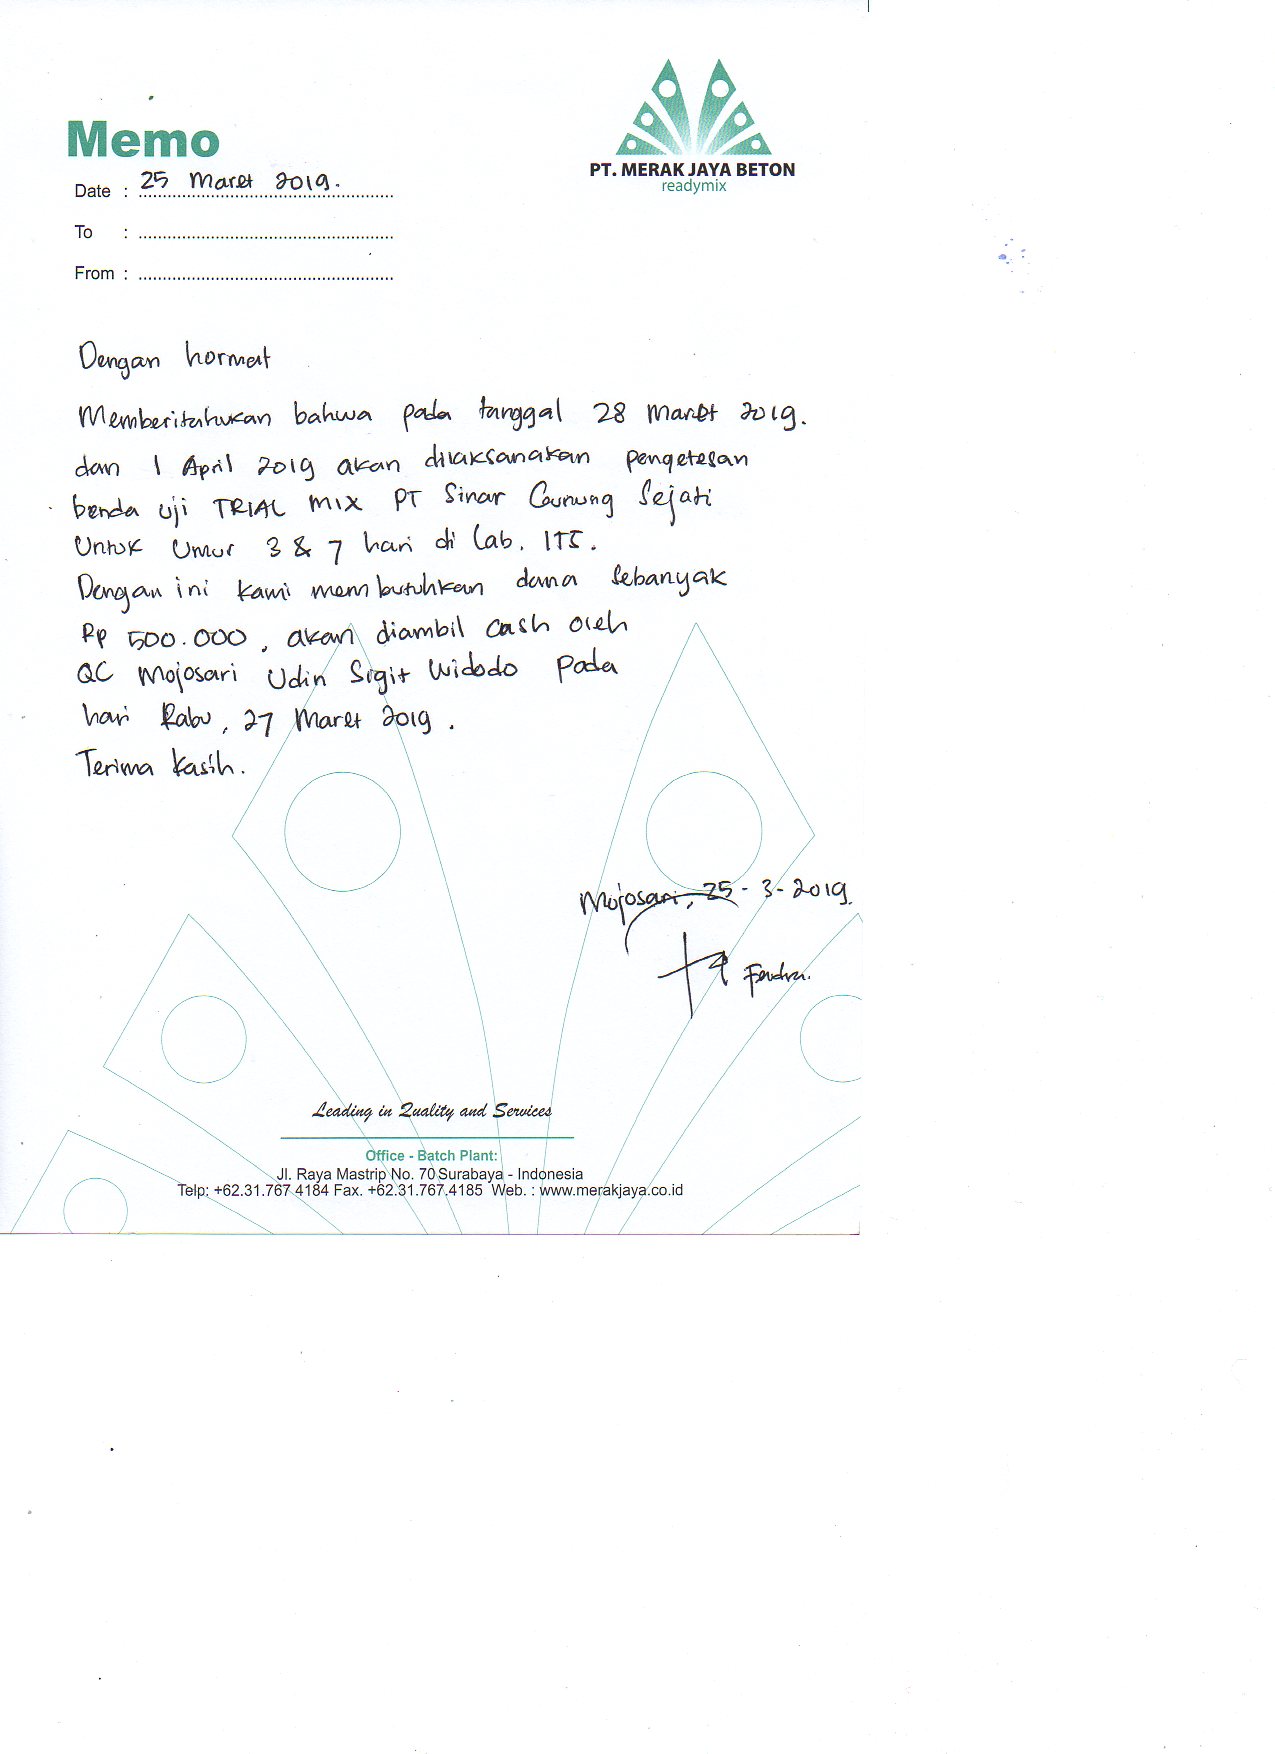 Memo
PT. MERAK JAYA BETON
readymix
Date : 25 Maret 2019.
To :
From :
Dengan hormat
Memberitahukan bahwa pada tanggal 28 Maret 2019.
dan 1 April 2019 akan dilaksanakan pengetesan
benda uji TRIAL MIX PT Sinar Gunung Sejati
Untuk Umur 3 & 7 hari di Lab. ITS.
Dengan ini kami membutuhkan dana Sebanyak
Rp 500.000, akan diambil cash oleh
QC Mojosari Udin Sigit Widodo pada
hari Rabu, 27 Maret 2019.
Terima kasih.
Mojosari, 25-3-2019.
Fendra.
Leading in Quality and Services
Office - Batch Plant:
Jl. Raya Mastrip No. 70 Surabaya - Indonesia
Telp: +62.31.767 4184 Fax. +62.31.767.4185 Web. : www.merakjaya.co.id